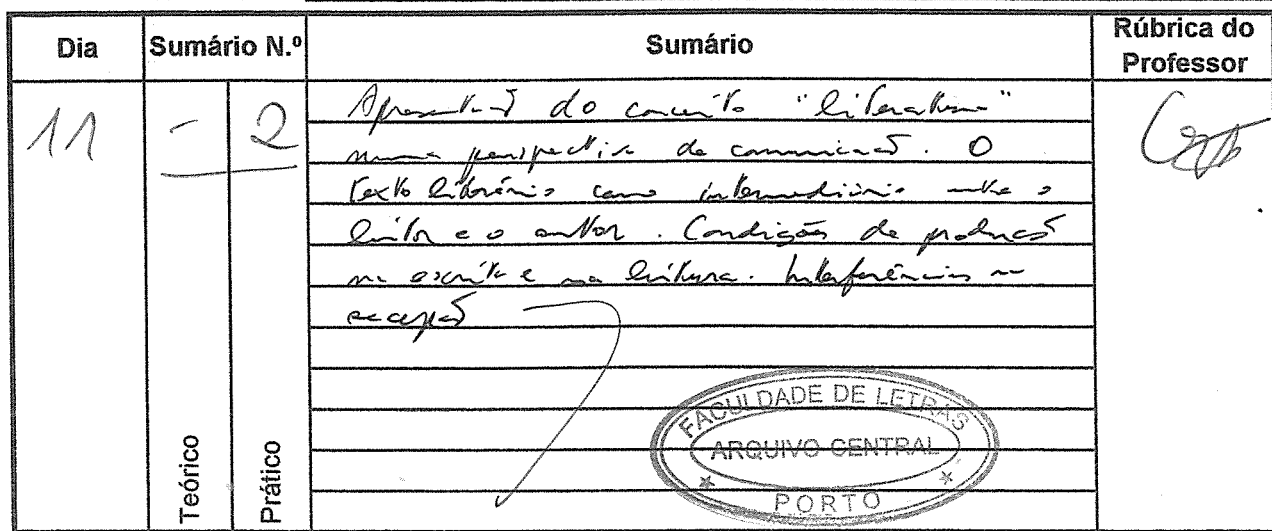 Dia Sumário N.º Sumário Rúbrica do Professor
11 - 2
Apresentação do conceito "literatura"
numa perspectiva de comunicação. O
texto literário como intermediário entre o
leitor e o autor. Condições de produção
na escrita e na leitura. Interferências na
recepção
Teórico
Prático
FACULDADE DE LETRAS
ARQUIVO CENTRAL
PORTO